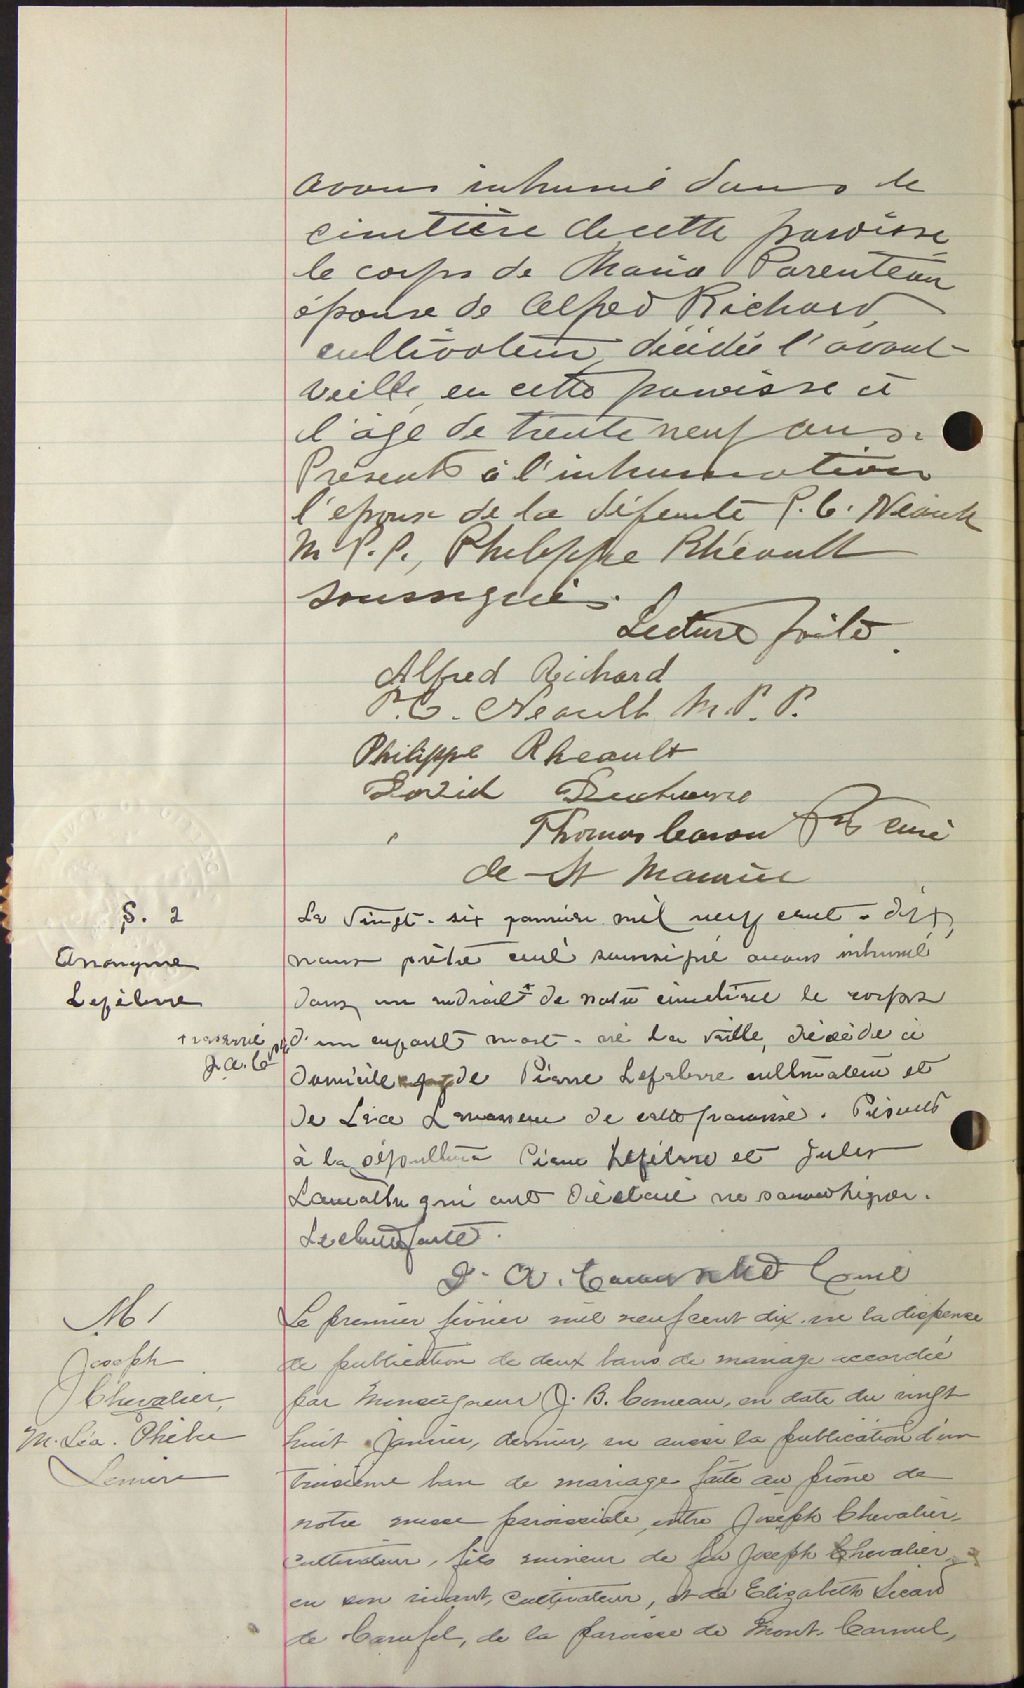 avons inhumé dans le
cimetière de cette paroisse
le corps de Maria Parenteau
épouse de Alfred Richard,
cultivateur, décédée l'avant-
veille, en cette paroisse à
l'âge de trente neuf ans.
Présents à l'inhumation
l'époux de la défunte P. C. Néault
M.P.P., Philippe Rhéault
soussignés.
Lecture faite.
Alfred Richard
P. C. Neault M.P.P.
Philippe Rheault
David
Thomas Caron Ptre curé
de St Maurice
S. 2
Anonyme
Lefebvre
Le vingt-six janvier mil neuf cent-dix,
nous prêtre curé soussigné avons inhumé
dans un endroit + de notre cimetière le corps
+ réservé
J.A.C. ptre
d'un enfant mort-né la veille, décédé à
domicile de Pierre Lefebvre cultivateur et
de Léa de cette paroisse. Présents
à la sépulture Pierre Lefebvre et Jules
qui ont déclaré ne savoir signer.
Lecture faite.
Caron Ptre Curé
M 1
Joseph
Chevalier,
M. Léa. Phébe
Lemire
Le premier février mil neuf cent dix, vu la dispense
de publication de deux bans de mariage accordée
par Monseigneur J. B. Comeau, en date du vingt
huit janvier, dernier, vu aussi la publication d'un
troisième ban de mariage faite au prône de
notre messe paroissiale, entre Joseph Chevalier,
cultivateur, fils mineur de feu Joseph Chevalier
en son vivant, cultivateur, et de Elizabeth Sicard
de Carufel, de la paroisse de Mont-Carmel,